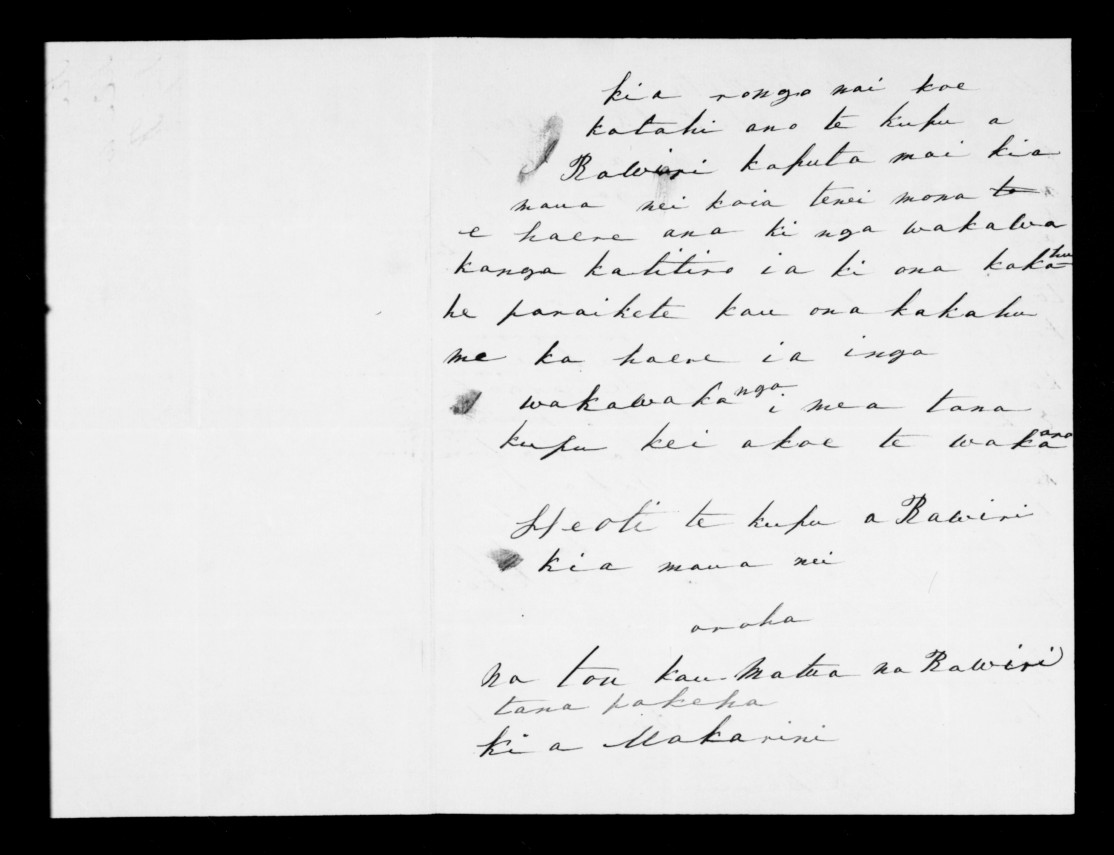 kia rongo mai koe
katahi ano te kupu a
Rawiri kaputa mai kia
maua nei koia tenei mona te
e haere ana ki nga wakawa
kanga katitiro ia ki ona kakahu
he paraikete kau ona kakahu
me ka haere ia inga
wakawakanga i mea tana
kupu kei akoe te wakaaro
Heoti te kupu a Rawiri
kia maua nei
aroha
na tou kau-matua na Rawiri
tana pakeha
ki a Makarini